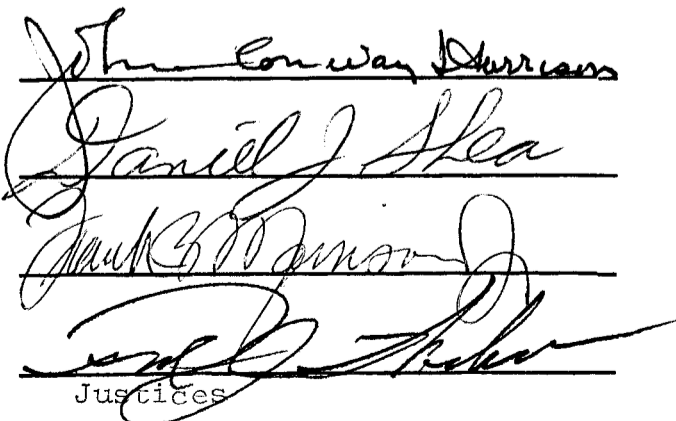 John Conway Harrison
Daniel J. Shea
Frank B Morrison Jr
Justices